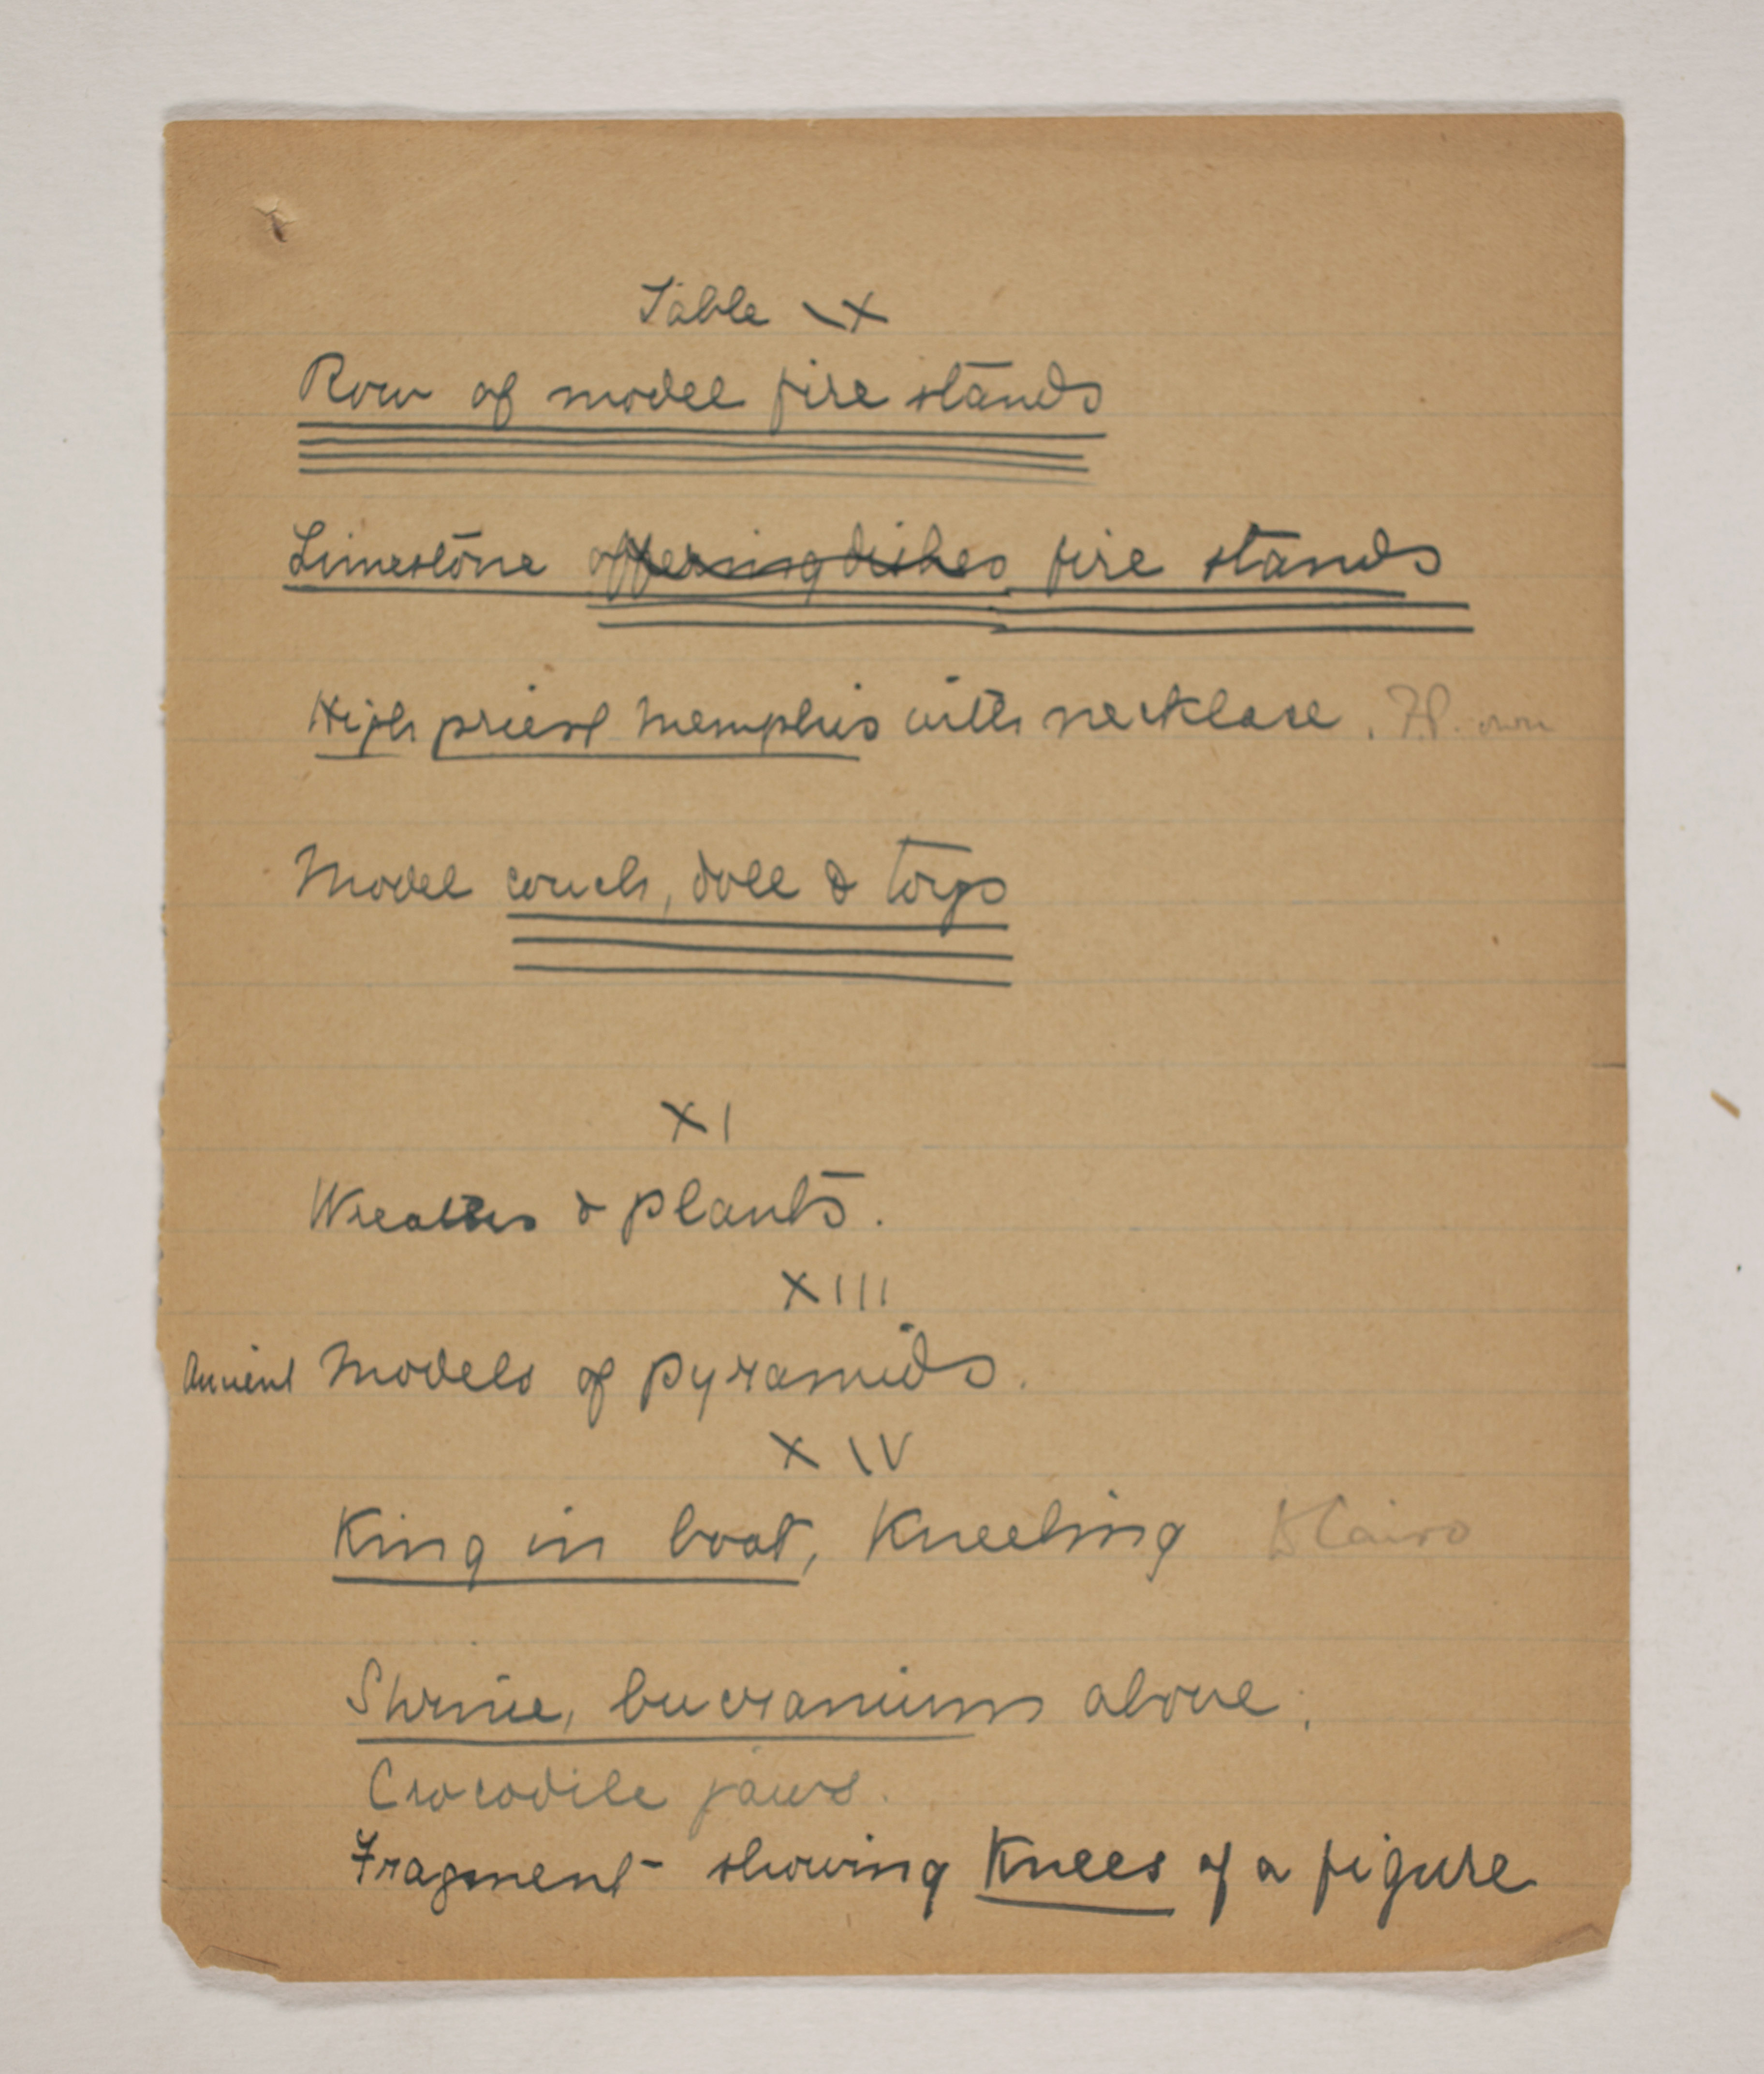 Table IX
Row of model fire stands
Limestone offering dishes fire stands
High priest Memphis with necklace.
Model couch, doll & toys
XI
Wreaths & plants.
XIII
Ancient Models of pyramids.
XIV
King in boat, Kneeling Cairo
Shrine, bucranium above.
Crocodile jaws.
Fragment - showing Knees of a figure